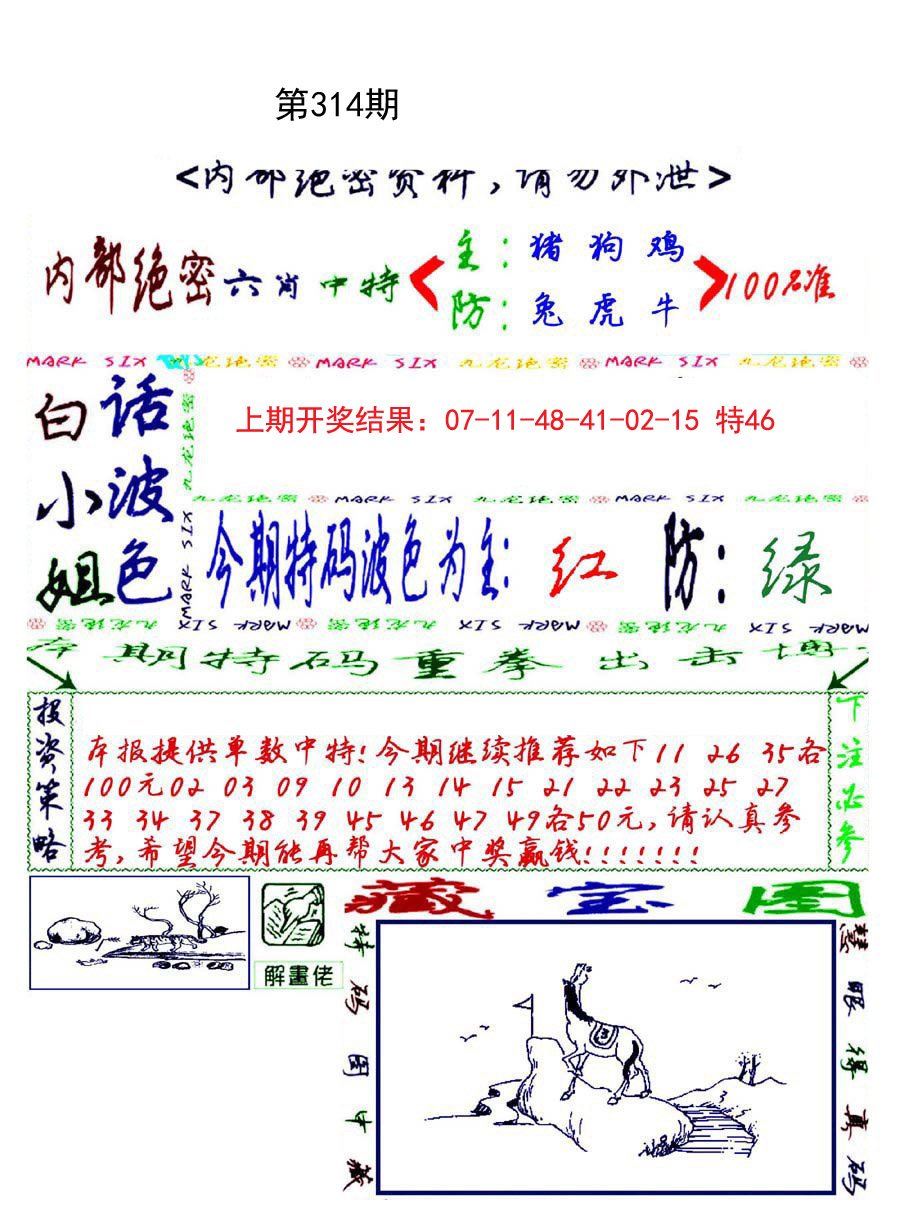 第314期
<内部绝密资料，请勿外泄>
内部绝密六肖中特
主：猪 狗 鸡
防：兔 虎 牛
100%准
MARK SIX 九龙绝密 MARK SIX 九龙绝密 MARK SIX 九龙绝密
九龙绝密 MARK SIX
白话
小波
姐色
上期开奖结果：07-11-48-41-02-15 特46
九龙绝密 MARK SIX 九龙绝密 MARK SIX 九龙绝密
今期特码波色为主：红 防：绿
九龙绝密 MARK SIX 九龙绝密 MARK SIX 九龙绝密 MARK SIX
本期特码重拳出击博
投资策略
本报提供单数中特!今期继续推荐如下11 26 35各
100元02 03 09 10 13 14 15 21 22 23 25 27
33 34 37 38 39 45 46 47 49各50元,请认真参
考,希望今期能再帮大家中奖赢钱!!!!!!!
下注必参
解畫佬
藏宝图
特码图中藏
慧眼得真码